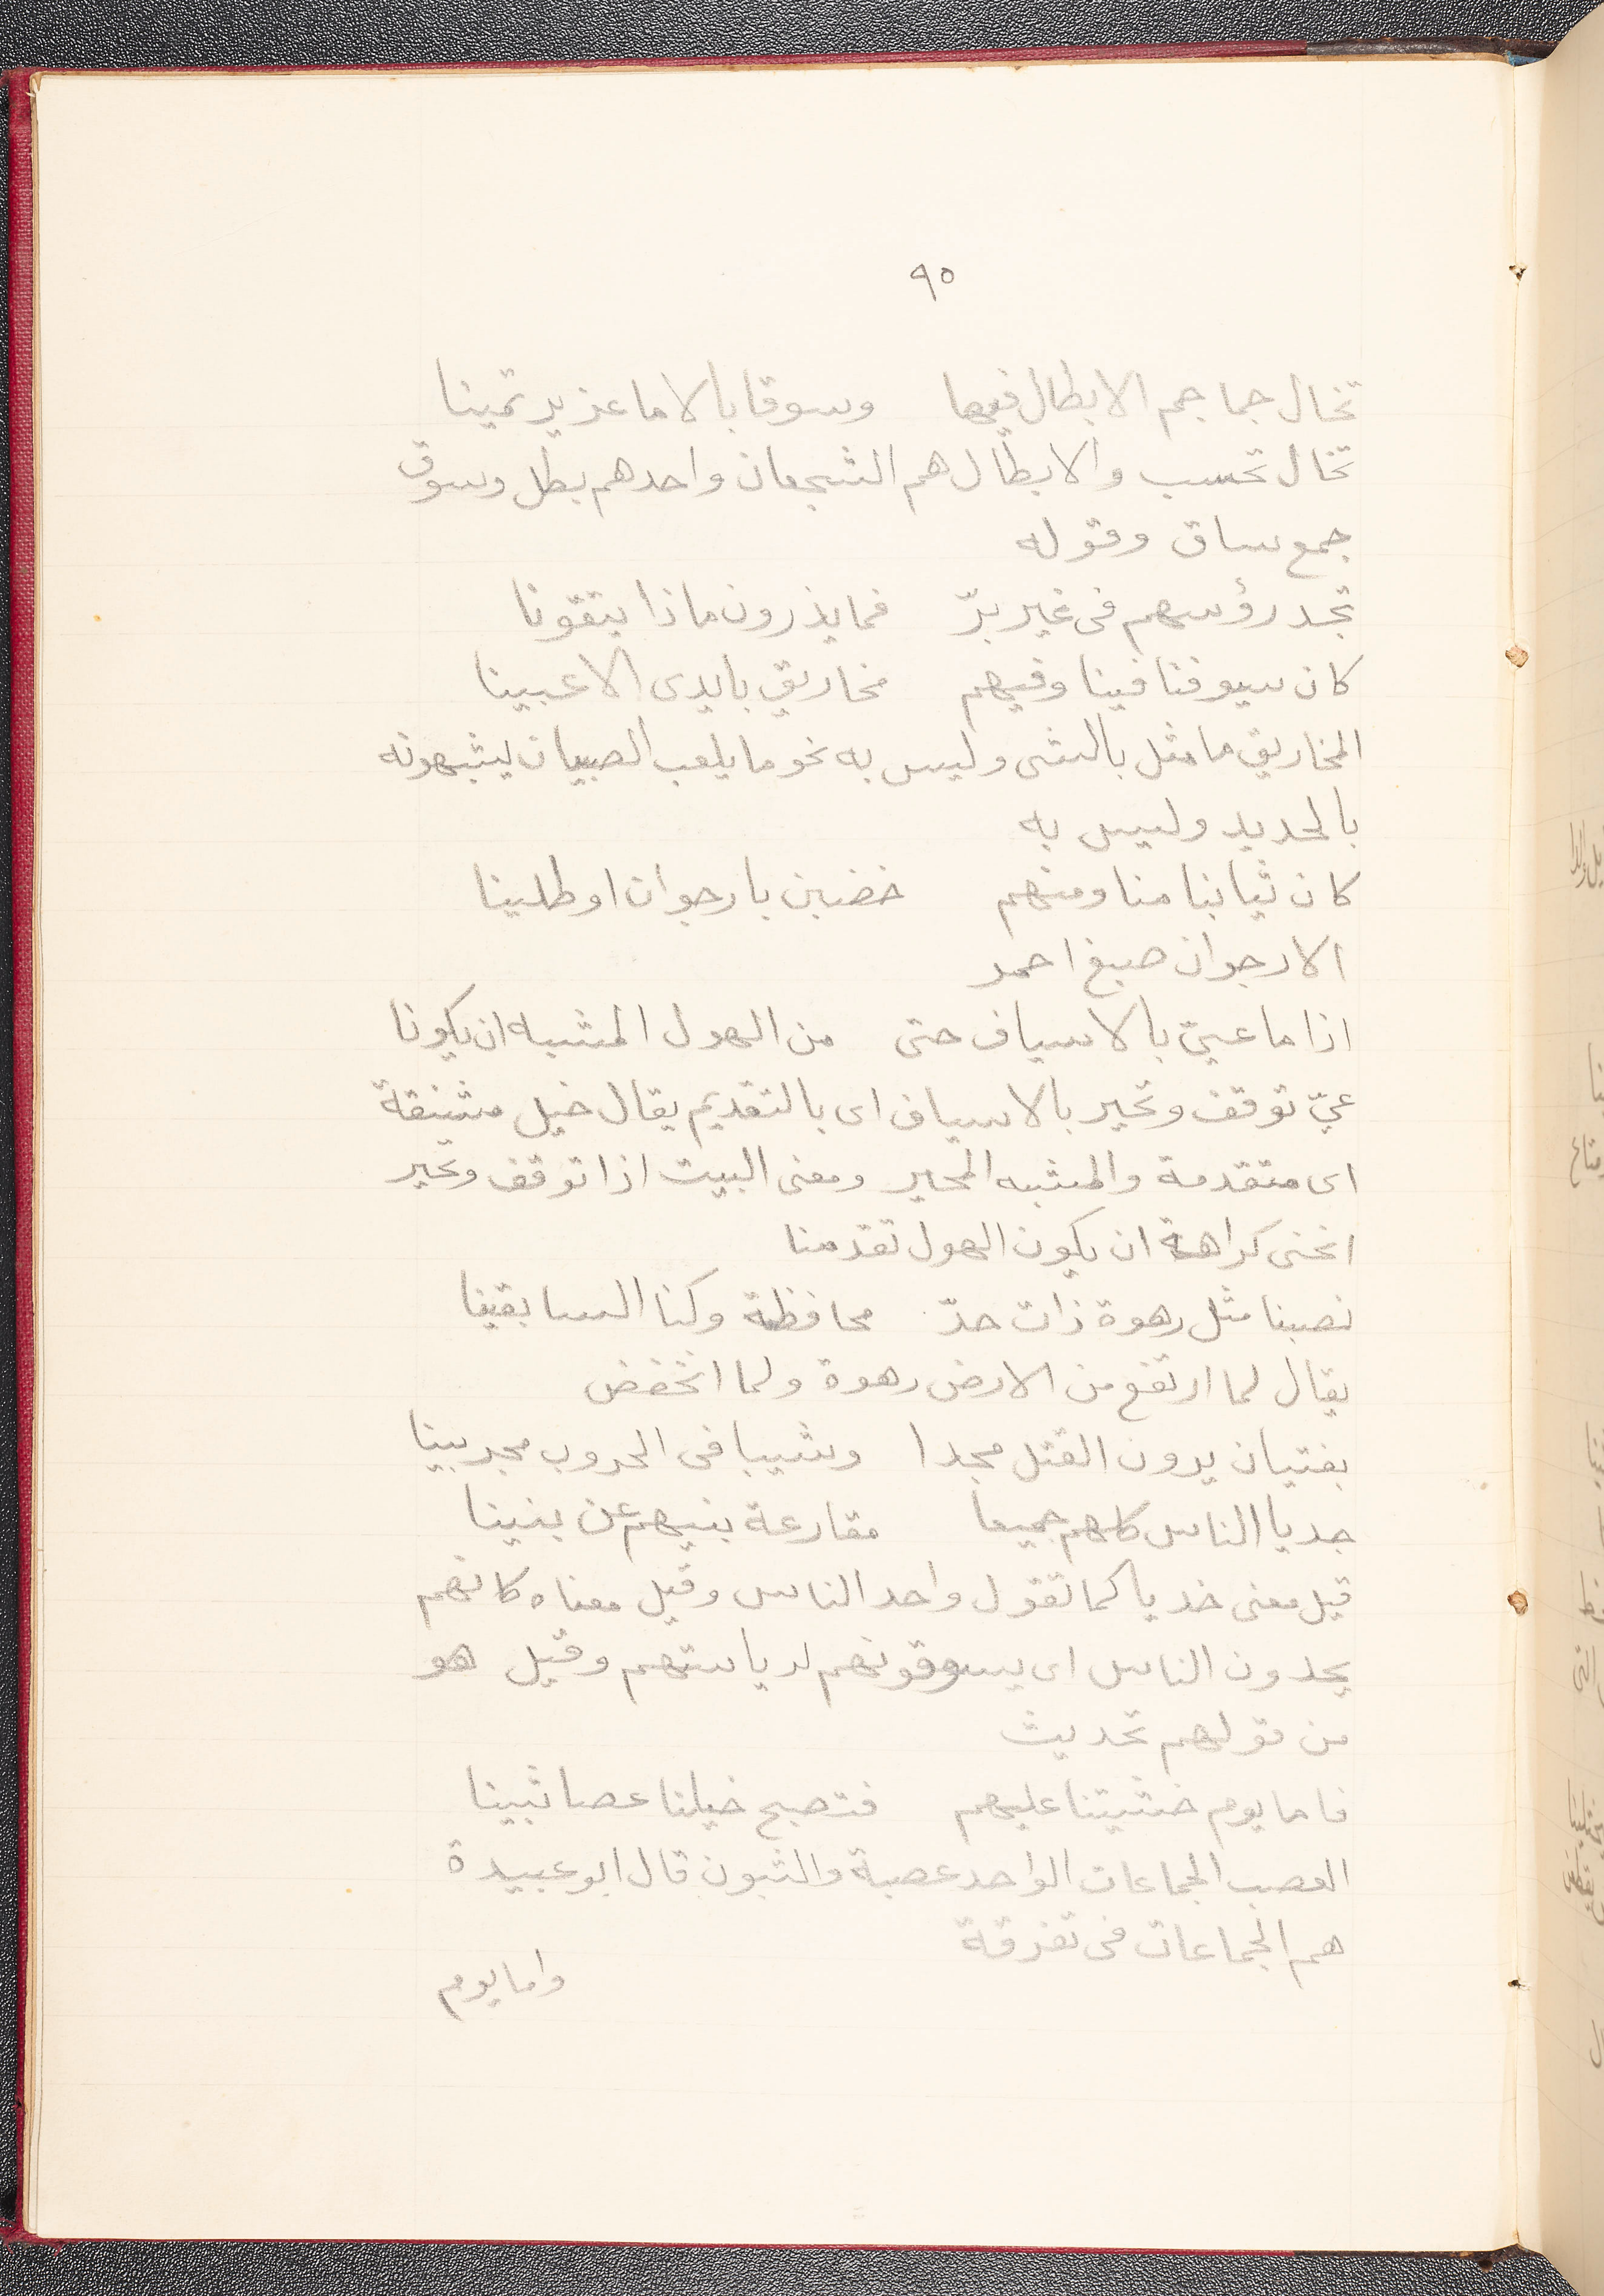 ٩٥
تخال جماجم الابطال فيها وسوقا بالاماعز يرتمينا
تخال تحسب والابطال هم الشجعان واحدهم بطل وسوق
جمع ساق وقوله
تجد رؤسهم فى غير برّ فما يذرون ماذا يتقونا
كان سيوفنا فينا وفيهم مخاريق بايدى الاعبينا
المخاريق ما مثل بالشى وليس به نحو ما يلعب الصبيان يشبهونه
بالحديد وليس به
كان ثيابنا منا ومنهم خضبن بارجوان او طلينا
الارجوان صبغ احمر
اذا ما عيّ بالاسياف حتى من الهول المشبه ان يكونا
عيّ توقف وتحير بالاسياف اى بالتقديم يقال خيل مشنقة
اى متقدمة والمشبه المحير ومعنى البيت اذا توقف وتحير
انحنى كراهة ان يكون الهول تقدمنا
نصبنا مثل رهوة ذات حدّ محافظة وكنا السابقينا
يقال لما ارتفع من الارض رهوة ولما انخفض
بفتيان يرون القتل مجدا وشيبا فى الحروب مجربينا
حديا الناس كلهم جميعا مقارعة بنيهم عن بنينا
قيل معنى خديا كما تقول واحد الناس وقيل معناه كانهم
يحدون الناس اى يسوقونهم لرياستهم وقيل هو
من قولهم تحديث
فاما يوم خشيتنا عليهم فتصبح خيلنا عصبا ثبينا
العصب الجماعات الواحد عصبة والثبون قال ابو عبيدة
هم الجماعات فى تفرقة
واما يوم